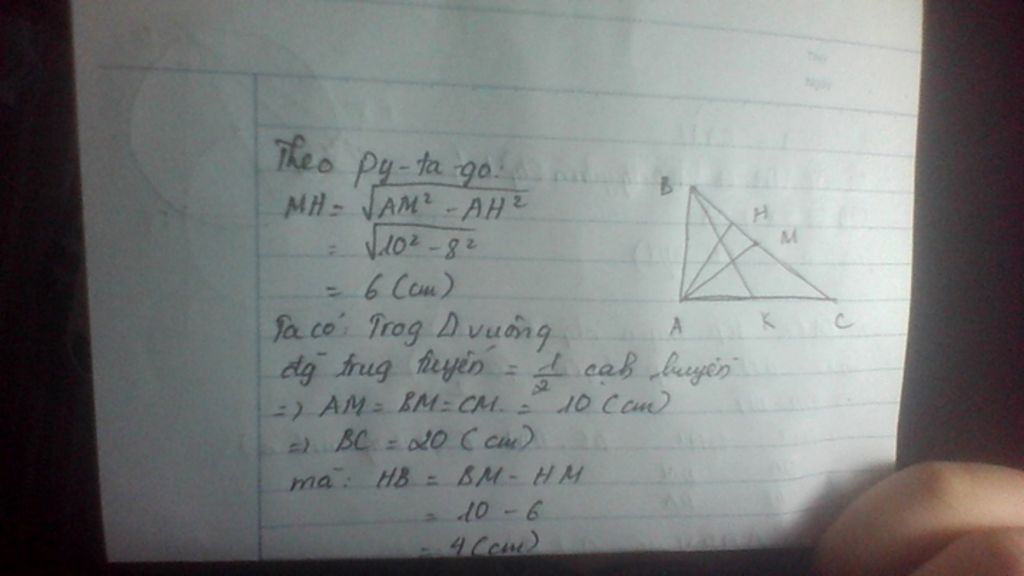 Theo Py-ta-go:
MH = √AM² - AH²
= √10² - 8²
= 6 (cm)
Ta có: Trog Δ vuông
đg trug tuyến = 1/2 cạh huyền
=> AM = BM = CM. = 10 (cm)
=> BC = 20 (cm)
mà: HB = BM - HM
= 10 - 6
= 4 (cm)
B
H
M
A
K
C